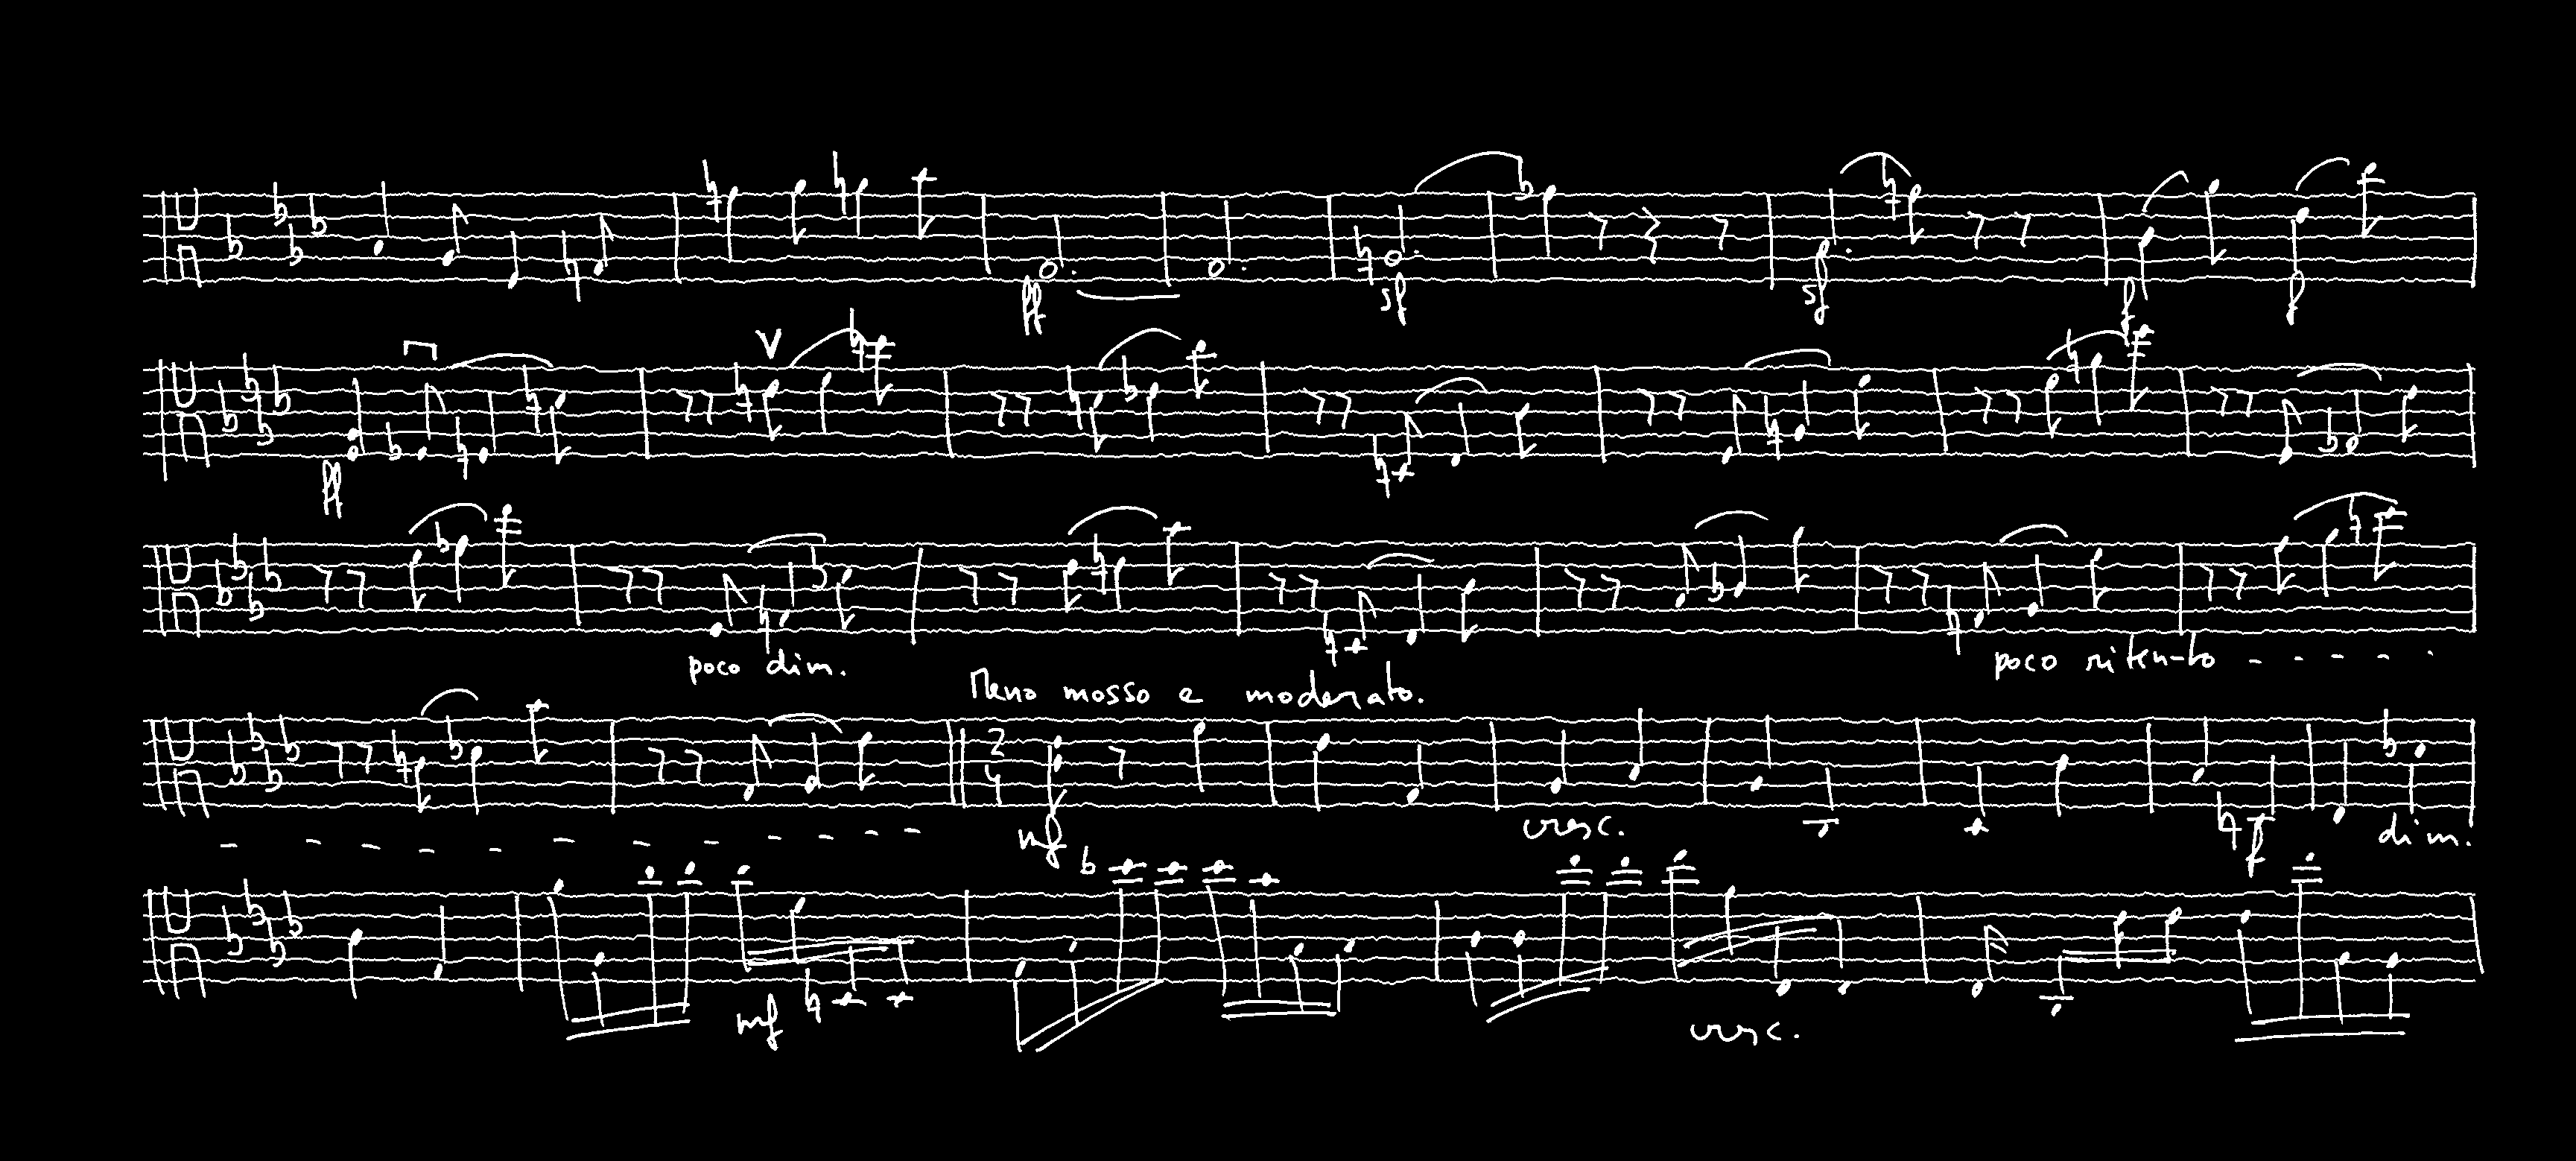 ff sf sf f f
V
ff
poco dim. poco riten-to - - - - -
Meno mosso e moderato.
2
4
- - - - - - - - - - - mf cresc. f dim.
mf cresc.